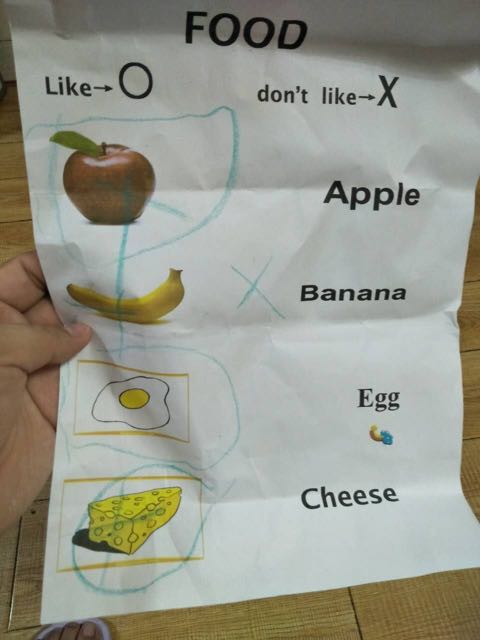 FOOD
Like→O don't like→X
Apple
Banana
Egg
Cheese